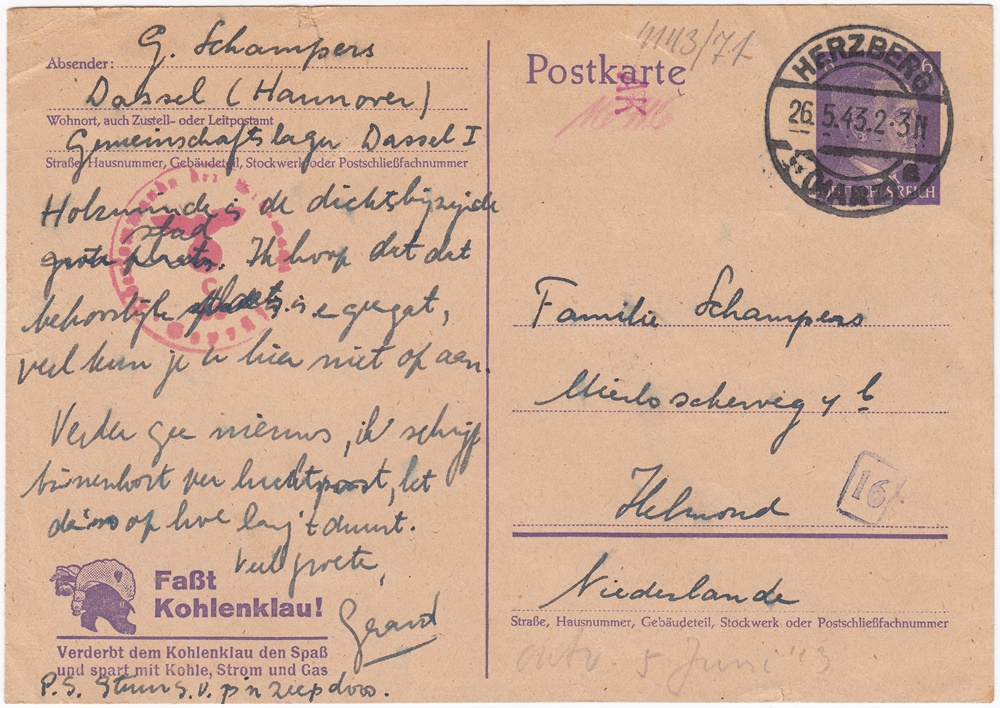 Absender: G. Schampers
Dassel (Hannover)
Wohnort, auch Zustell- oder Leitpostamt
Gemeinschaftslager Dassel I
Straße, Hausnummer, Gebäudeteil, Stockwerk oder Postschließfachnummer
Holzminde is de dichtsbijzijnde
stad
grote plaats. Ik hoop dat dat
behoorlijk is
veel kun je er hier niet op aan.
Verder gee nieuws, ik schrijf
binnenkort per luchtpost, let
dan op hoe lang 't duurt.
Veel groete,
Gerard
Faßt
Kohlenklau!
Verderbt dem Kohlenklau den Spaß
und spart mit Kohle, Strom und Gas
P.S. Stuur s.v.p. 'n zeepdoos.
4143/71
Postkarte
AK
HERZBERG
26.5.43.2-3N
(HARZ)
a
6
DEUTSCHES REICH
Familie Schampers
Mierloscheweg 4 b
Helmond
16
Niederlande
Straße, Hausnummer, Gebäudeteil, Stockwerk oder Postschließfachnummer
5 Juni '43